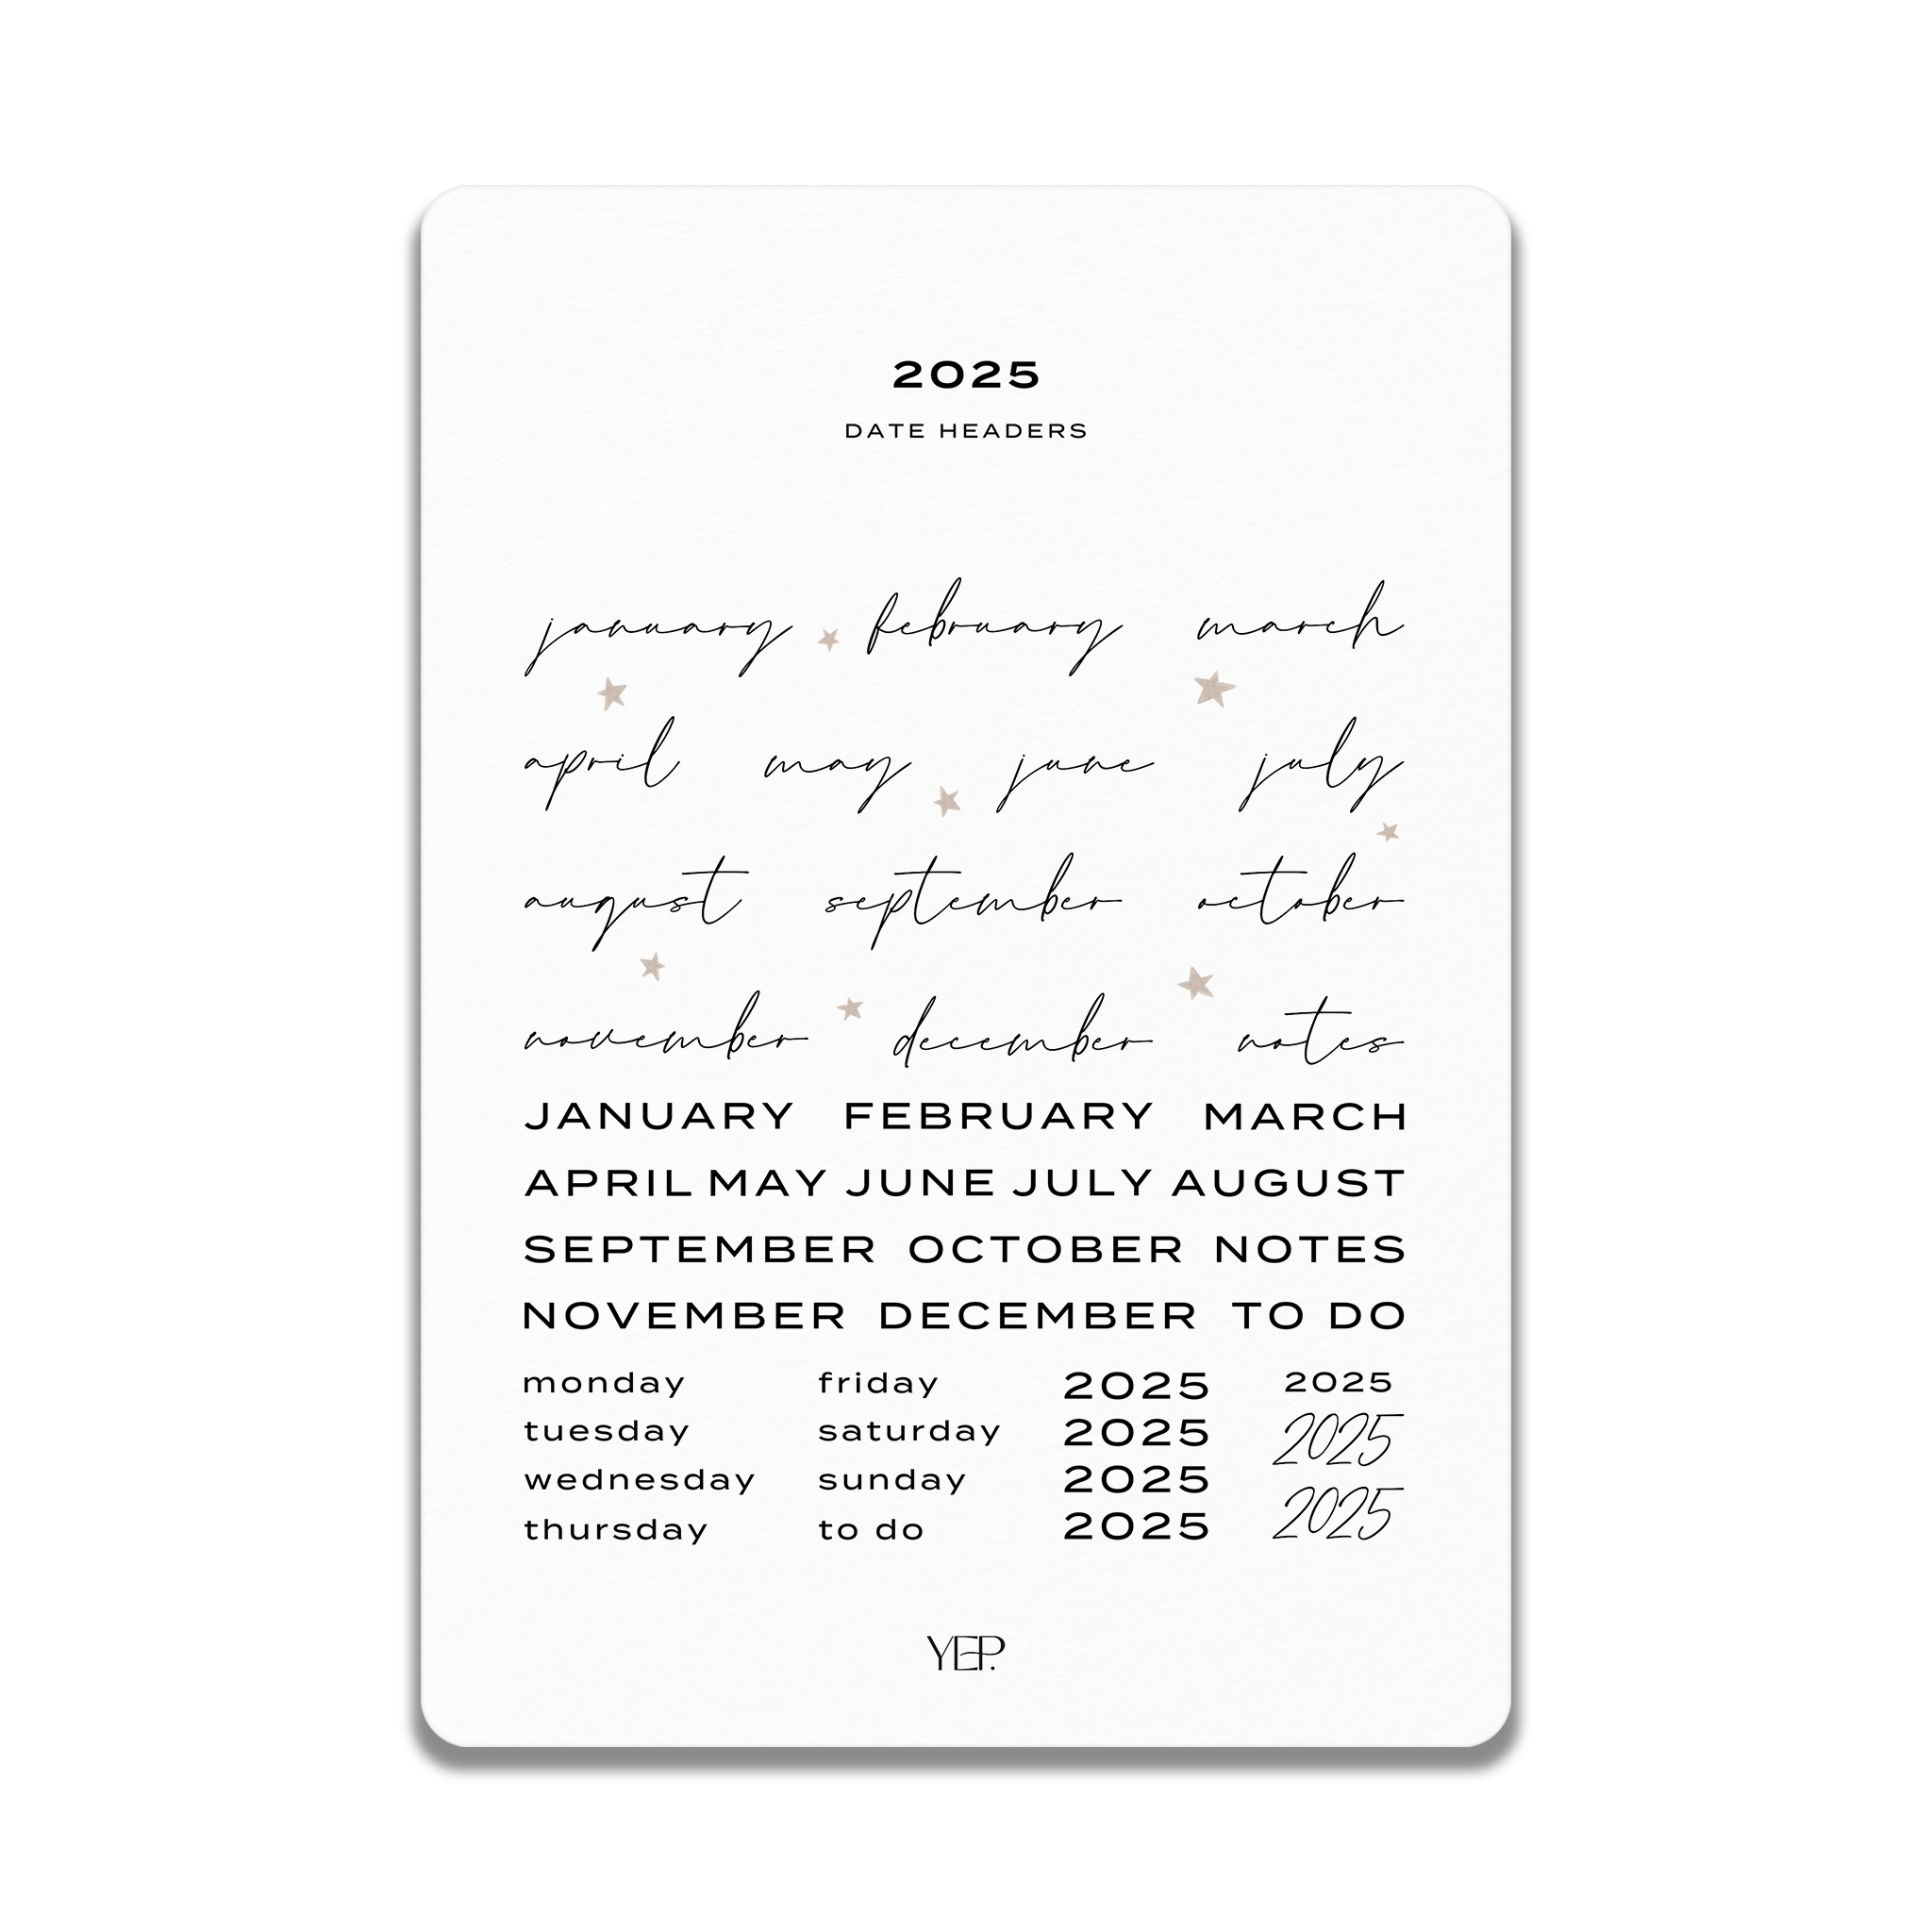 2025
DATE HEADERS
january february march
april may june july
august september october
november december notes
JANUARY FEBRUARY MARCH
APRIL MAY JUNE JULY AUGUST
SEPTEMBER OCTOBER NOTES
NOVEMBER DECEMBER TO DO
monday friday 2025 2025
tuesday saturday 2025 2025
wednesday sunday 2025 2025
thursday to do 2025
YEP.